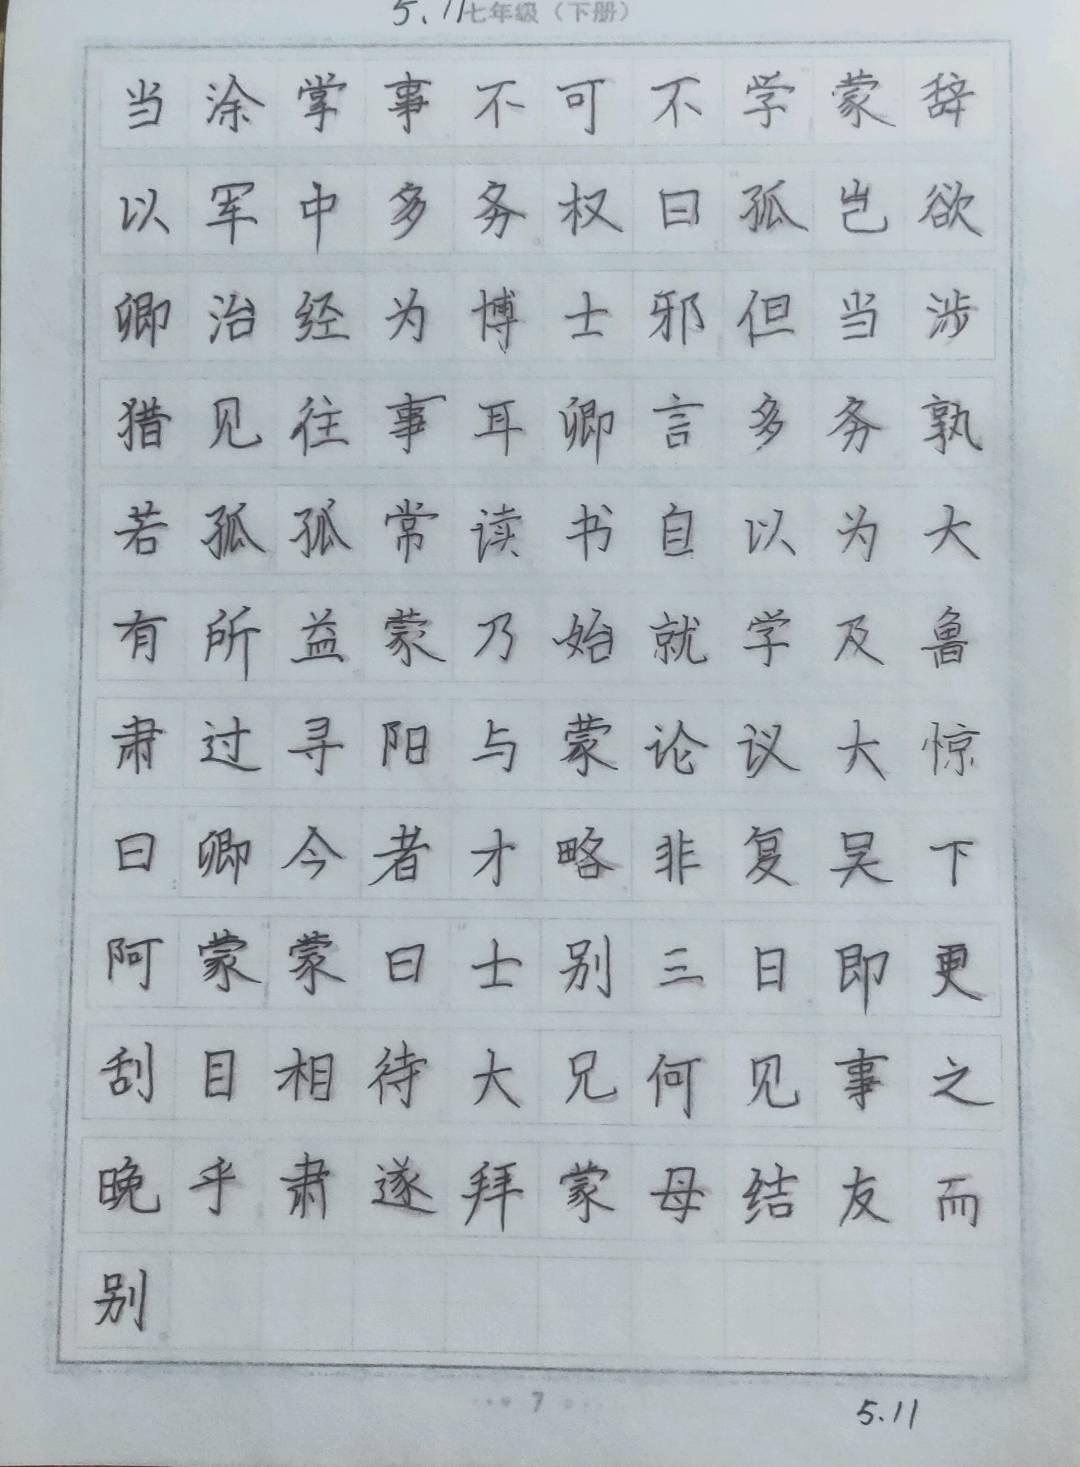 5.11七年级（下册）
当涂掌事不可不学蒙辞
以军中多务权曰孤岂欲
卿治经为博士邪但当涉
猎见往事耳卿言多务孰
若孤孤常读书自以为大
有所益蒙乃始就学及鲁
肃过寻阳与蒙论议大惊
曰卿今者才略非复吴下
阿蒙蒙曰士别三日即更
刮目相待大兄何见事之
晚乎肃遂拜蒙母结友而
别
7
5.11